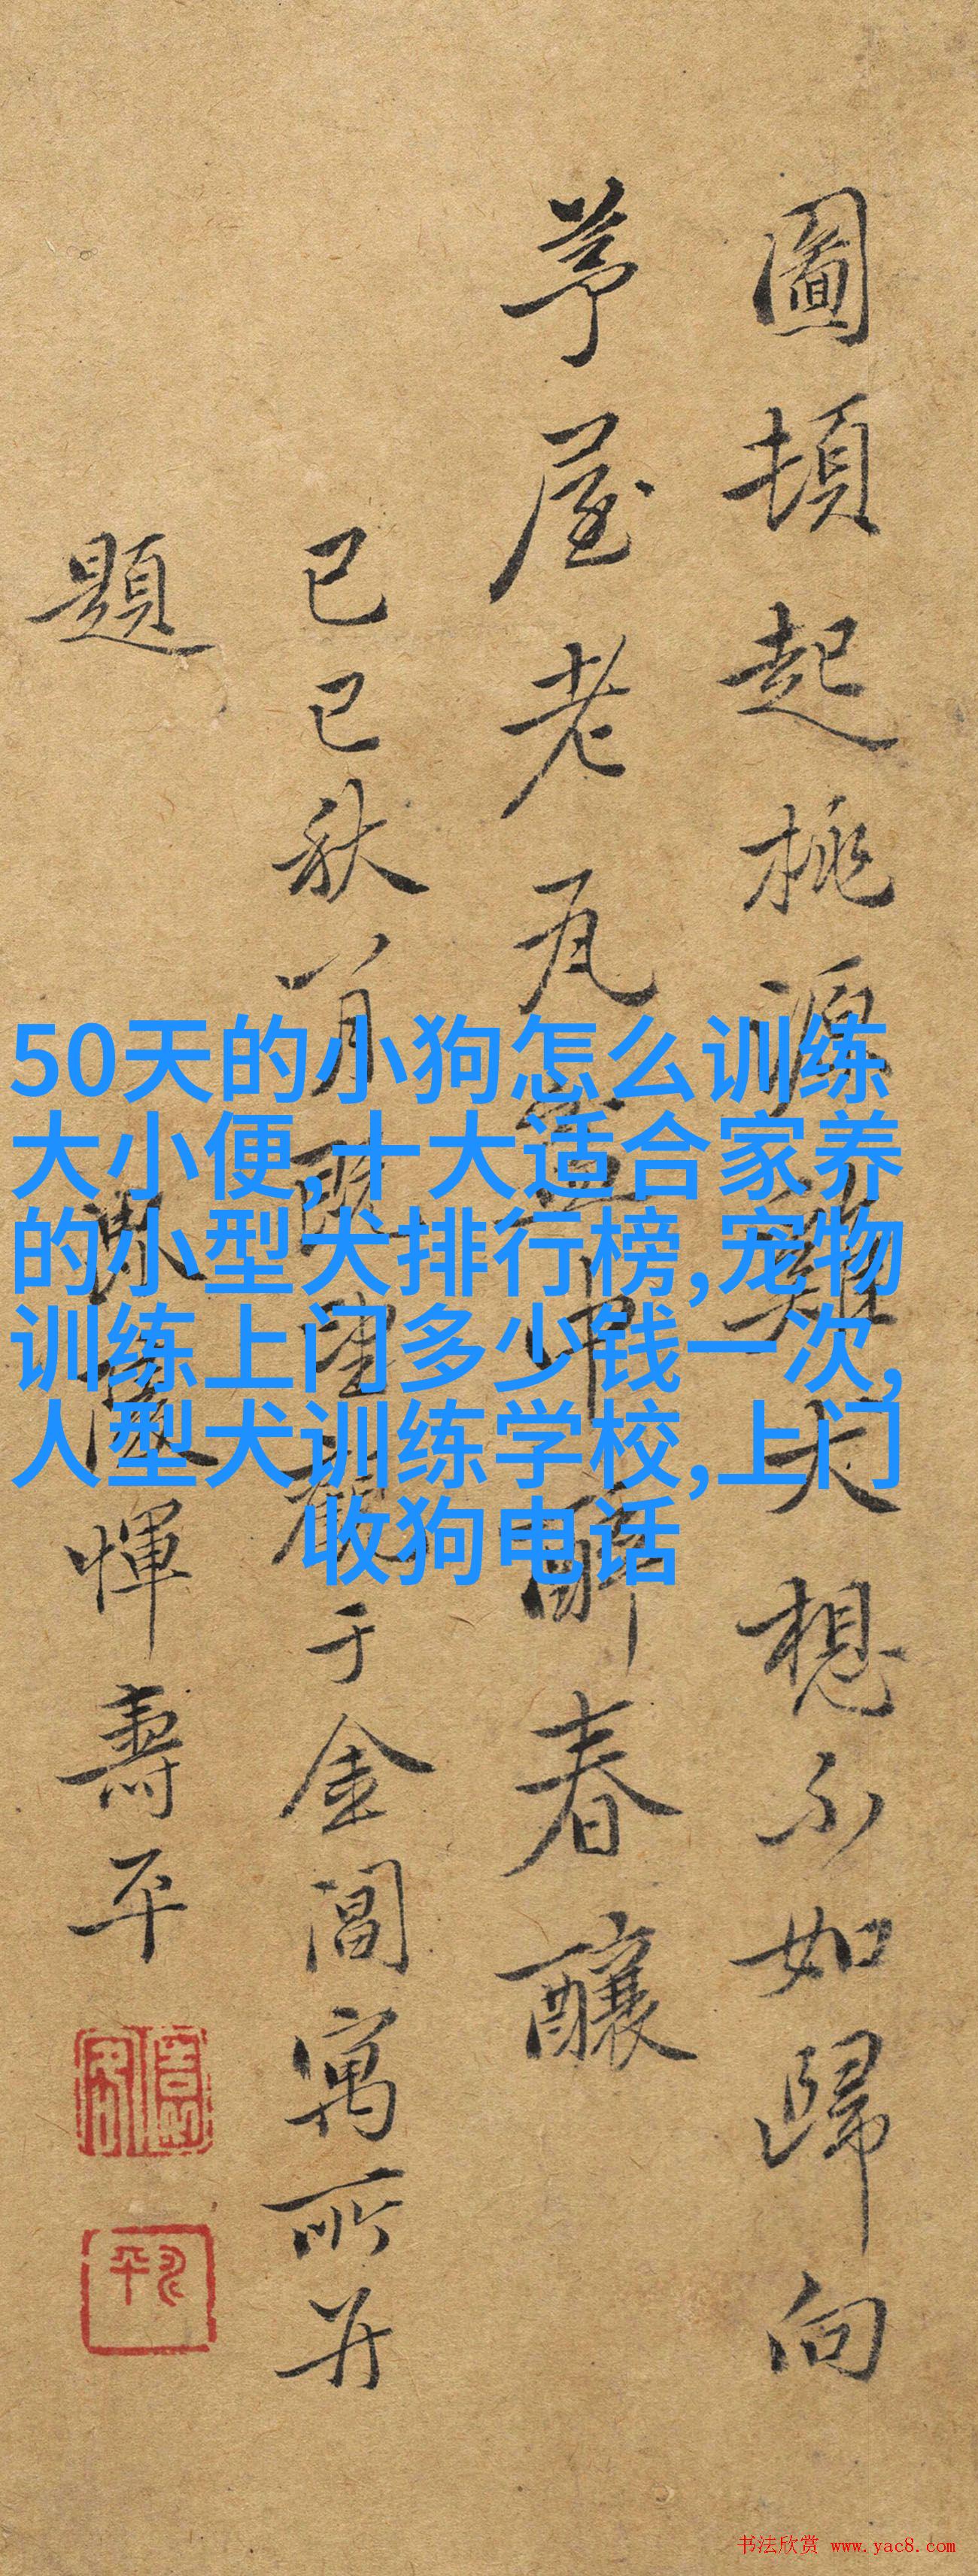 圖頓起桃源雞犬想不如歸向
茅屋老瓦盆中醉春釀
己巳秋八月既望觀于金閶寓所并
題
毗陵惲壽平
50天的小狗怎么训练
大小便,十大适合家养
的小型犬排行榜,宠物
训练上门多少钱一次,
人型犬训练学校,上门
收狗电话
书法欣赏 www.yac8.com